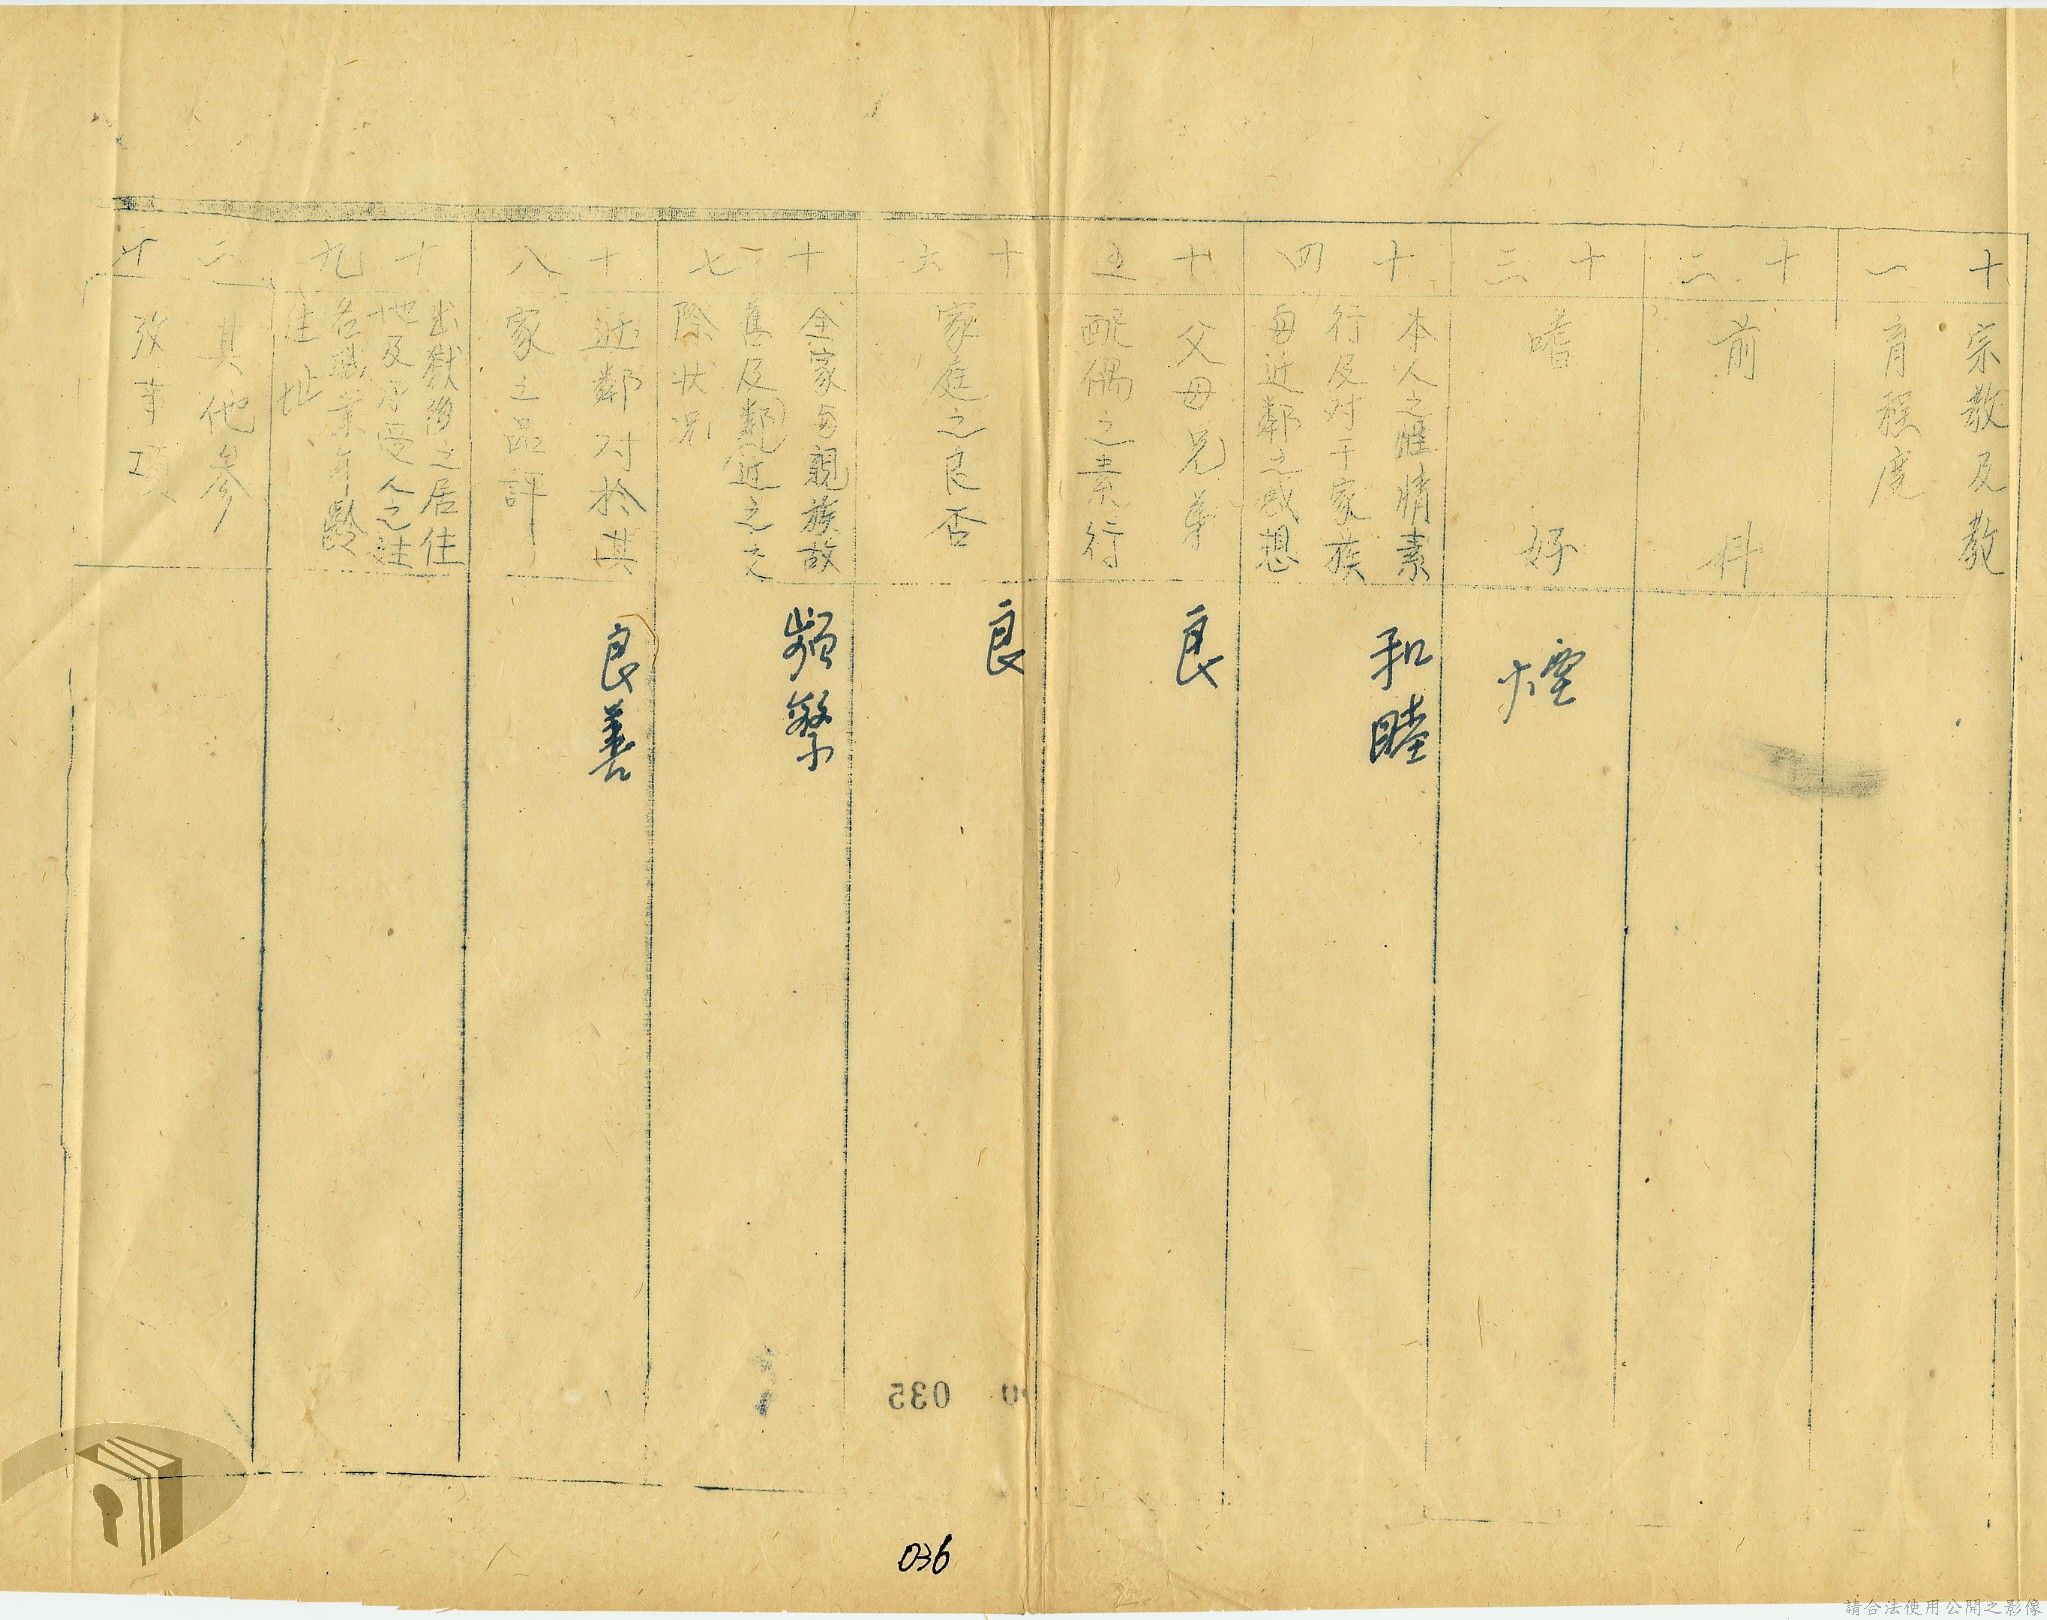 十一
宗教及教
育程度
十二
前科
十三
嗜好
煙
十四
本人之性情素
行及对于家族
與近鄰之感想
和睦
十五
父母兄弟
配偶之素行
良
十六
家庭之良否
良
十七
全家與親族故
舊及鄰近之交
除状況
頻繁
十八
近鄰对於其
家之品評
良善
十九
出獄後之居住
地及承受人之姓
名職業年齡
住址
二十
其他參
攷事項
035
036
請合法使用公開之影像